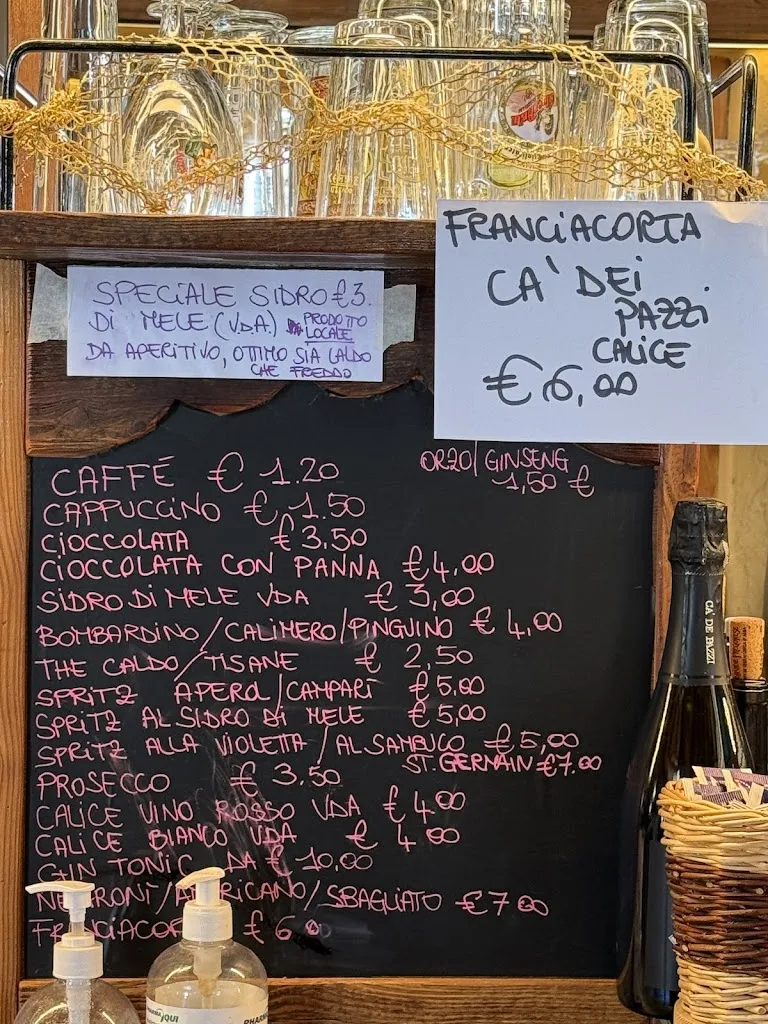 FRANCIACORTA
CA' DEI
PAZZI
CALICE
€6,00
SPECIALE SIDRO €3.
DI MELE (VDA.) PRODOTTO
LOCALE
DA APERITIVO, OTTIMO SIA CALDO
CHE FREDDO
CAFFÉ € 1.20
ORZO/GINSENG
1,50 €
CAPPUCCINO €1.50
CIOCCOLATA €3.50
CIOCCOLATA CON PANNA €4,00
SIDRO DI MELE VDA €3,00
BOMBARDINO/CALIMERO/PINGUINO €4,00
THE CALDO/TISANE € 2,50
SPRITZ APEROL/CAMPARI €5,00
SPRITZ AL SIDRO DI MELE €5,00
SPRITZ ALLA VIOLETTA/AL SAMBUCO €5,00
ST. GERMAIN €7.00
PROSECCO € 3.50
CALICE VINO ROSSO VDA €4.00
CALICE BIANCO VDA € 4.00
GIN TONIC DA € 10,00
NE RONI/A RICANO/SBAGLIATO €7.00
FRANCIACOR € 6.00
CA DEI PAZZI